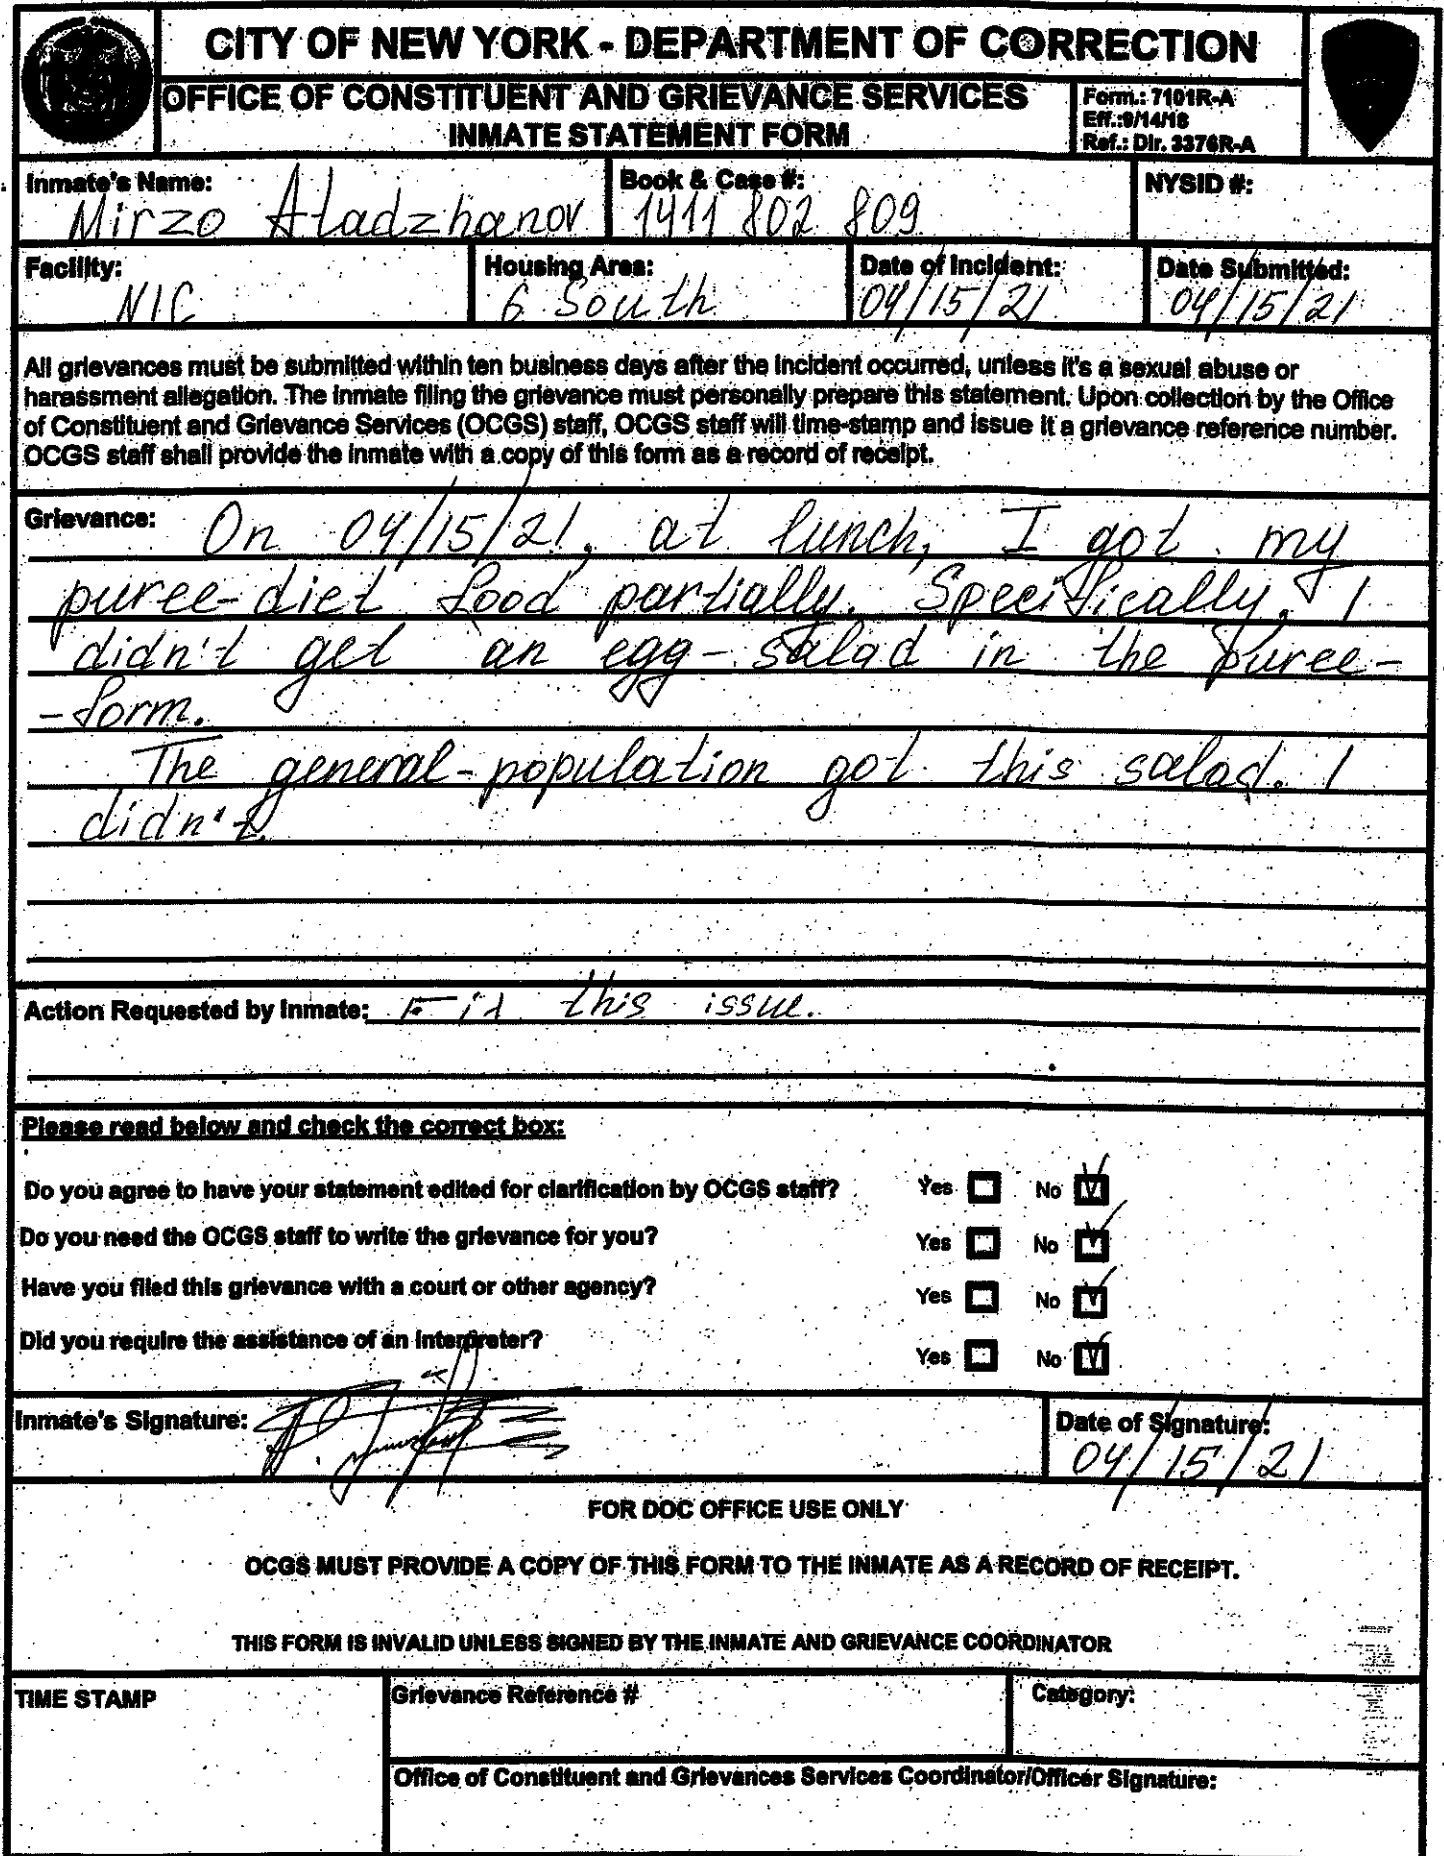 CITY OF NEW YORK - DEPARTMENT OF CORRECTION
OFFICE OF CONSTITUENT AND GRIEVANCE SERVICES
INMATE STATEMENT FORM
Form.: 7101R-A
Eff.:9/14/18
Ref.: Dir. 3376R-A
Inmate's Name:
Mirzo Atadzhanov
Book & Case #:
1411 802 809
NYSID #:
Facility:
NIC
Housing Area:
6 South
Date of Incident:
04/15/21
Date Submitted:
04/15/21
All grievances must be submitted within ten business days after the incident occurred, unless it's a sexual abuse or
harassment allegation. The inmate filing the grievance must personally prepare this statement. Upon collection by the Office
of Constituent and Grievance Services (OCGS) staff, OCGS staff will time-stamp and issue it a grievance reference number.
OCGS staff shall provide the inmate with a copy of this form as a record of receipt.
Grievance: On 04/15/21, at lunch, I got my
puree-diet food partially. Specifically, I
didn't get an egg-salad in the puree-
-form.
The general-population got this salad. I
didn't.
Action Requested by Inmate: Fix this issue.
Please read below and check the correct box:
Do you agree to have your statement edited for clarification by OCGS staff? Yes No V
Do you need the OCGS staff to write the grievance for you? Yes No V
Have you filed this grievance with a court or other agency? Yes No V
Did you require the assistance of an interpreter? Yes No V
Inmate's Signature:
Date of Signature:
04/15/21
FOR DOC OFFICE USE ONLY
OCGS MUST PROVIDE A COPY OF THIS FORM TO THE INMATE AS A RECORD OF RECEIPT.
THIS FORM IS INVALID UNLESS SIGNED BY THE INMATE AND GRIEVANCE COORDINATOR
TIME STAMP
Grievance Reference #
Category:
Office of Constituent and Grievances Services Coordinator/Officer Signature: